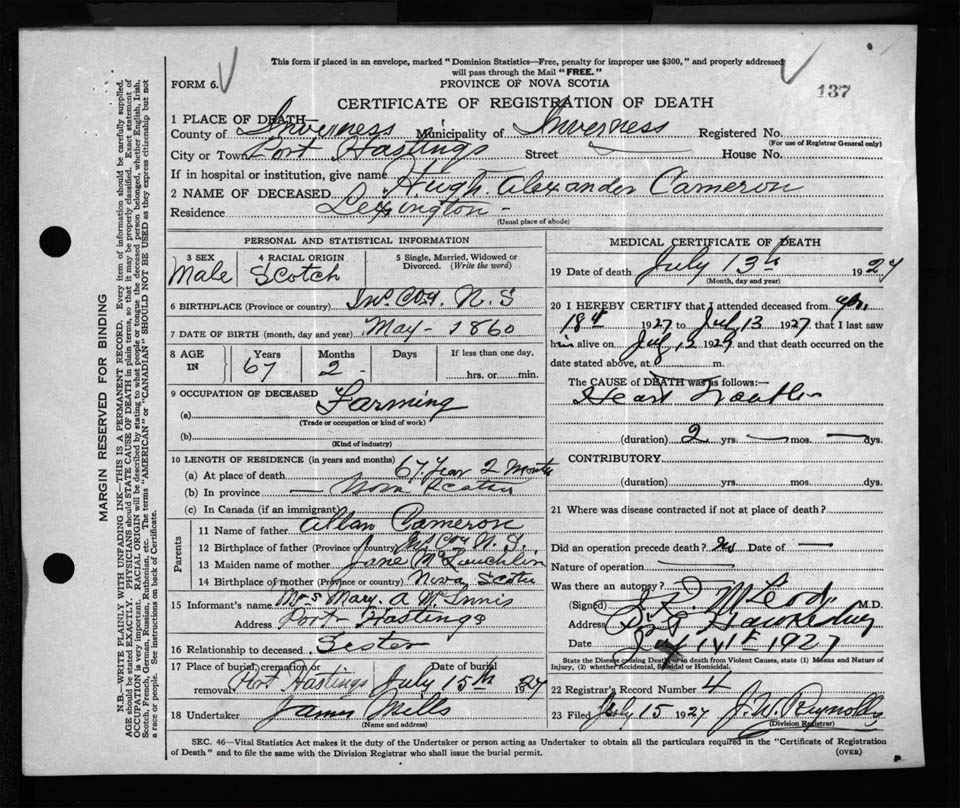 This form if placed in an envelope, marked "Dominion Statistics—Free, penalty for improper use $300," and properly addressed
will pass through the Mail "FREE."
FORM 6.
PROVINCE OF NOVA SCOTIA
137
CERTIFICATE OF REGISTRATION OF DEATH
1 PLACE OF DEATH
County of Inverness Municipality of Inverness Registered No.
(For use of Registrar General only)
City or Town Port Hastings Street House No.
If in hospital or institution, give name
2 NAME OF DECEASED Hugh Alexander Cameron
Residence Lexington
(Usual place of abode)
PERSONAL AND STATISTICAL INFORMATION
3 SEX 4 RACIAL ORIGIN 5 Single, Married, Widowed or Divorced. (Write the word)
Male Scotch
6 BIRTHPLACE (Province or country) Inv. Co. N. S
7 DATE OF BIRTH (month, day and year) May - 1860
8 AGE IN Years Months Days If less than one day,
67 2 - hrs. or min.
9 OCCUPATION OF DECEASED
(a) Farming
(Trade or occupation or kind of work)
(b)
(Kind of industry)
10 LENGTH OF RESIDENCE (in years and months)
(a) At place of death 67 Year 2 Months
(b) In province — Nova Scotia
(c) In Canada (if an immigrant)
Parents
11 Name of father Allan Cameron
12 Birthplace of father (Province or country) N. S.
13 Maiden name of mother Jane McLauchlin
14 Birthplace of mother (Province or country) Nova Scotia
15 Informant's name Mrs Mary. A McInnis
Address Port Hastings
16 Relationship to deceased Sester
17 Place of burial, cremation or removal Date of burial
Port Hastings July 15th 1927
18 Undertaker James Mills
(Name and address)
MEDICAL CERTIFICATE OF DEATH
19 Date of death July 13th 1927
(Month, day and year)
20 I HEREBY CERTIFY that I attended deceased from
18th 1927 to July 13 1927 that I last saw
him alive on July 12 1927 and that death occurred on the
date stated above, at m.
The CAUSE of DEATH was as follows:—
Heart Trouble
(duration) 2 yrs. — mos. — dys.
CONTRIBUTORY
(duration) yrs. mos. dys.
21 Where was disease contracted if not at place of death?
Did an operation precede death? No Date of —
Nature of operation —
Was there an autopsy?
(Signed) McLeod M.D.
Address Hawkesbury
Date 1927
State the Disease causing Death, or in death from Violent Causes, state (1) Means and Nature of
Injury, (2) whether Accidental, Suicidal or Homicidal.
22 Registrar's Record Number 4
23 Filed July 15 1927 J. W. Reynolds
(Division Registrar)
SEC. 46—Vital Statistics Act makes it the duty of the Undertaker or person acting as Undertaker to obtain all the particulars required in the "Certificate of Registration
of Death" and to file the same with the Division Registrar who shall issue the burial permit.
(OVER)
MARGIN RESERVED FOR BINDING
N.B.—WRITE PLAINLY WITH UNFADING INK—THIS IS A PERMANENT RECORD. Every item of information should be carefully supplied.
AGE should be stated EXACTLY. PHYSICIANS should STATE CAUSE OF DEATH in plain terms, so that it may be properly classified. Exact statement of
OCCUPATION is very important. RACIAL ORIGIN will be described by stating to what people or tongue the deceased person belonged, whether English, Irish,
Scotch, French, German, Russian, Ruthenian, etc. The terms "AMERICAN" or "CANADIAN" SHOULD NOT BE USED as they express citizenship but not
a race or people. See instructions on back of Certificate.